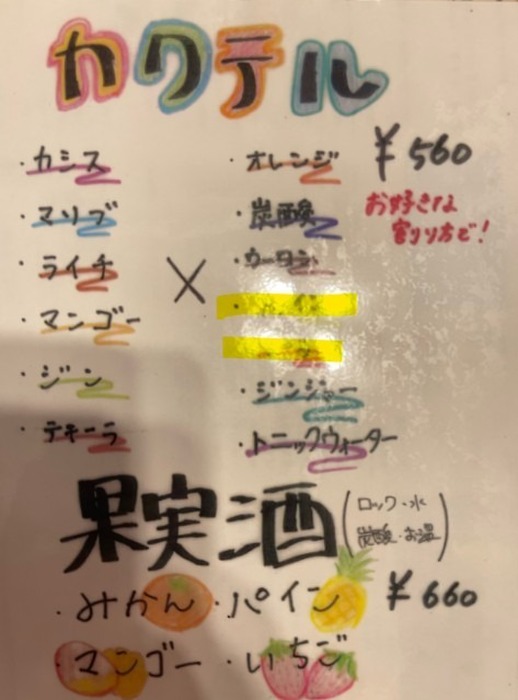 カクテル
・カシス ・オレンジ ¥560
・マリブ ・炭酸 お好きな
割り方で!
・ライチ × ・ウーロン
・マンゴー
・ジン ・ジンジャー
・テキーラ ・トニックウォーター
果実酒 (ロック・水
炭酸・お湯)
・みかん ・パイン ¥660
・マンゴー ・いちご